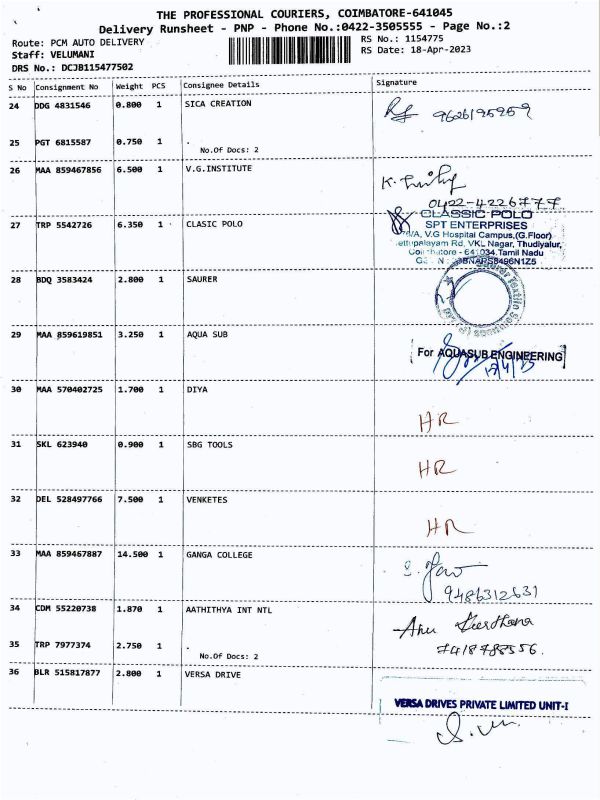 THE PROFESSIONAL COURIERS, COIMBATORE-641045
Delivery Runsheet - PNP - Phone No.:0422-3505555 - Page No.:2
Route: PCM AUTO DELIVERY
RS No.: 1154775
Staff: VELUMANI
RS Date: 18-Apr-2023
DRS No.: DCJB115477502
S No Consignment No Weight PCS Consignee Details Signature
24 DDG 4831546 0.800 1 SICA CREATION
9626195959
25 PGT 6815587 0.750 1 .
No.Of Docs: 2
26 MAA 859467856 6.500 1 V.G.INSTITUTE
0422-4226777
27 TRP 5542726 6.350 1 CLASIC POLO
CLASSIC POLO
SPT ENTERPRISES
V.G Hospital Campus,(G.Floor)
Rd, VKL Nagar, Thudiyalur,
641 034.Tamil Nadu
28 BDQ 3583424 2.800 1 SAURER
29 MAA 859619851 3.250 1 AQUA SUB
For AQUASUB ENGINEERING
30 MAA 570402725 1.700 1 DIYA
HR
31 SKL 623940 0.900 1 SBG TOOLS
HR
32 DEL 528497766 7.500 1 VENKETES
HR
33 MAA 859467887 14.500 1 GANGA COLLEGE
9486312631
34 CDM 55220738 1.870 1 AATHITHYA INT NTL
Anu Keerthana
7418788556.
35 TRP 7977374 2.750 1 .
No.Of Docs: 2
36 BLR 515817877 2.800 1 VERSA DRIVE
VERSA DRIVES PRIVATE LIMITED UNIT-I